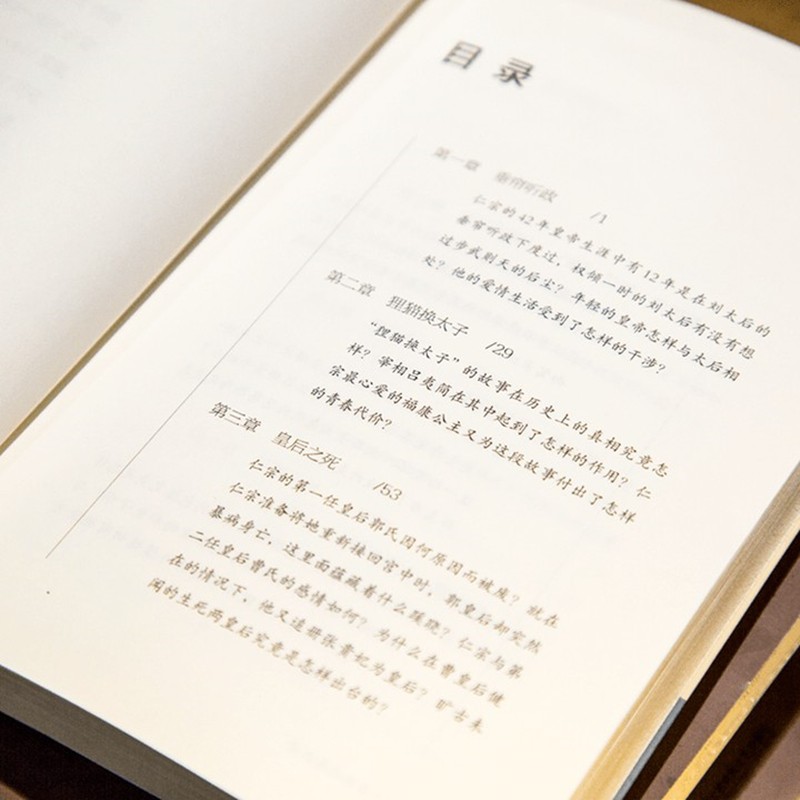 目录
第一章 垂帘听政 /1
仁宗的42年皇帝生涯中有12年是在刘太后的
垂帘听政下度过，权倾一时的刘太后有没有想
过步武则天的后尘？年轻的皇帝怎样与太后相
处？他的爱情生活受到了怎样的干涉？
第二章 狸猫换太子 /29
“狸猫换太子”的故事在历史上的真相究竟怎
样？宰相吕夷简在其中起到了怎样的作用？仁
宗最心爱的福康公主又为这段故事付出了怎样
的青春代价？
第三章 皇后之死 /53
仁宗的第一任皇后郭氏因何原因而被废？就在
仁宗准备将她重新接回宫中时，郭皇后却突然
暴病身亡，这里面蕴藏着什么蹊跷？仁宗与第
二任皇后曹氏的感情如何？为什么在曹皇后健
在的情况下，他又追册张贵妃为皇后？旷古未
闻的生死两皇后究竟是怎样出台的？